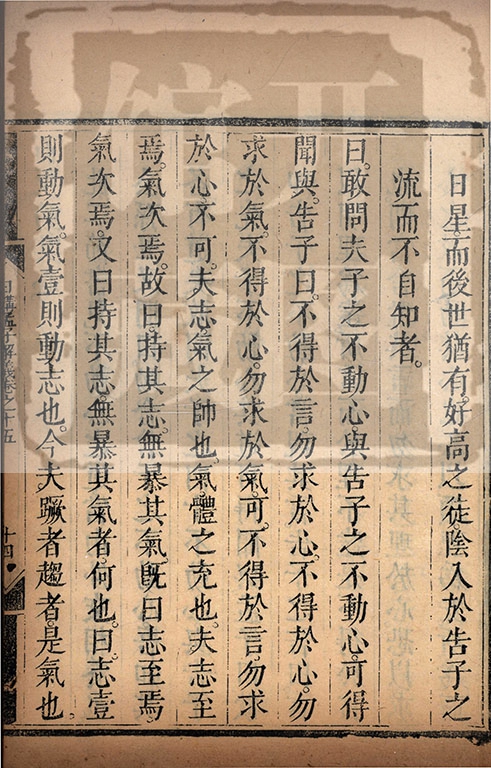 日星而後世猶有好高之徒。陰入於告子之
流而不自知者。
曰。敢問夫子之不動心。與告子之不動心。可得
聞與。告子曰。不得於言。勿求於心。不得於心。勿
求於氣。不得於心。勿求於氣。可。不得於言。勿求
於心。不可。夫志氣之帥也。氣體之充也。夫志至
焉。氣次焉。故曰。持其志。無暴其氣。旣曰志至焉
氣次焉。又曰持其志。無暴其氣者。何也。曰。志壹
則動氣。氣壹則動志也。今夫蹶者趨者。是氣也
日講
子解義卷之十五
十四